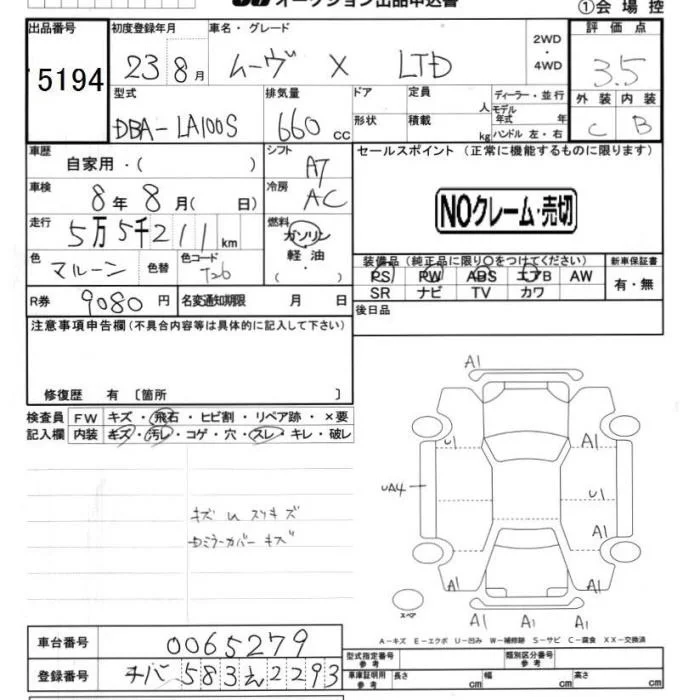 オークション出品申込書 ①会場控
出品番号 初度登録年月 車名・グレード 評価点
5194 23 8月 ムーヴ X LTD 2WD・4WD 3.5
型式 排気量 ドア 定員 人 ディーラー・並行 外装 内装
DBA-LA100S 660cc 形状 積載 kg モデル年式 年 ハンドル 左・右 C B
車歴 自家用・( ) シフト AT セールスポイント (正常に機能するものに限ります)
車検 8年8月( 日) 冷房 AC NOクレーム・売切
走行 5万5千211km 燃料 ガソリン
色 マルーン 色替 色コード T26 軽油・( ) 装備品(純正品に限り○をつけてください) 新車保証書
PS PW ABS エアB AW 有・無
R券 9080円 名変通知期限 月 日 SR ナビ TV カワ
注意事項申告欄(不具合内容等は具体的に記入して下さい) 後日品
修復歴 有 〔箇所 〕
検査員 FW キズ・飛石・ヒビ割・リペア跡・×要
記入欄 内装 キズ・汚レ・コゲ・穴・スレ・キレ・破レ
A1
U1 A1
UA4 U1
A1
A1 A1
スペア
A1 A1
キズ U スリキズ
ミラーカバー キズ
A-キズ E-エクボ U-凹み W-補修跡 S-サビ C-腐食 XX-交換済
車台番号 0065279 型式指定番号 参考 類別区分番号 参考
登録番号 チバ 583 え 2293 車庫証明用 参考 長さ cm 幅 cm 高さ cm